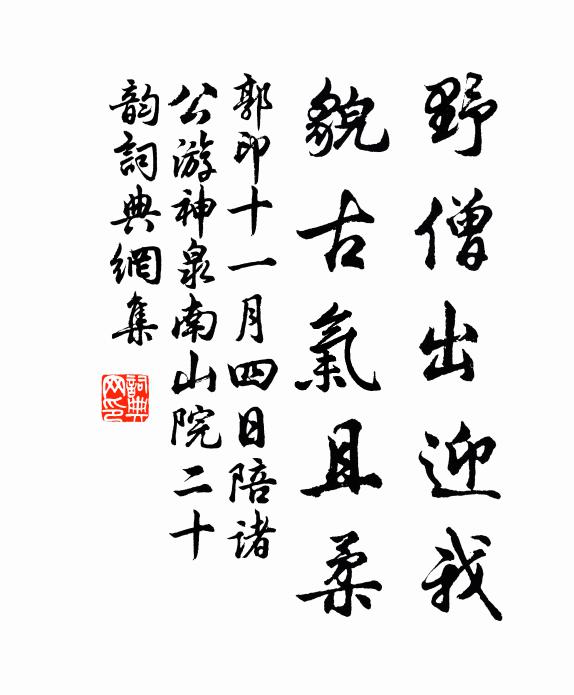 野僧出迎我
貌古氣且柔
郭印十一月四日陪諸
公游神泉南山院二十
韵詞典網集
詞典網印